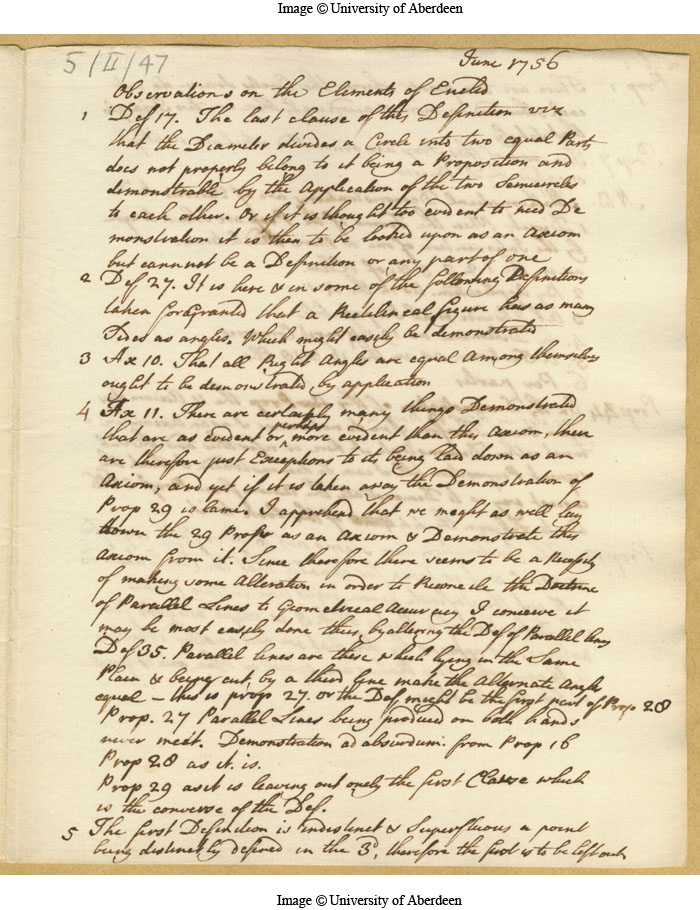 Image © University of Aberdeen
5/II/47
June 1756
Observations on the Elements of Euclid
1 Def 17. The last clause of this Definition viz
that the Diameter divides a Circle into two equal Parts
does not properly belong to it being a Proposition and
demonstrable by the Application of the two Semicircles
to each other. Or if it is thought too evident to need De
monstration it is then to be looked upon as an Axiom
but cannot be a Definition or any part of one
2 Def 27. It is here & in some of the following Definitions
taken for Granted that a Rectilineal figure has as many
Sides as angles. Which might easily be demonstrated
3 Ax 10. That all Right Angles are equal among themselves
ought to be demonstrated by application
4 Ax 11. There are certainly many things Demonstrated
that are as evident or perhaps more evident than this Axiom, there
are therefore just Exceptions to its being laid down as an
Axiom, and yet if it is taken away the Demonstration of
Prop 29 is lame. I apprehend that we might as well lay
down the 29 Prop as an Axiom & Demonstrate this
axiom from it. Since therefore there seems to be a Necessity
of making some Alteration in order to Reconcile the Doctrine
of Parallel Lines to Geometrical Accuracy I conceive it
may be most easily done thus, by altering the Def of Parallel lines
Def 35. Parallel lines are these which lying in the Same
Plain & being cut by a third line make the Alternate Angles
equal – this is prop 27. or the Def might be the first part of Prop 28
Prop. 27 Parallel Lines being produced on both hands
never meet. Demonstration ad absurdum. from Prop 16
Prop 28 as it is.
Prop 29 as it is leaving out onely the first Clause which
is the converse of the Def.
5 The first Definition is indistinct & Superfluous a point
being distinctly defined in the 3d, therefore the first is to be left out
Image © University of Aberdeen